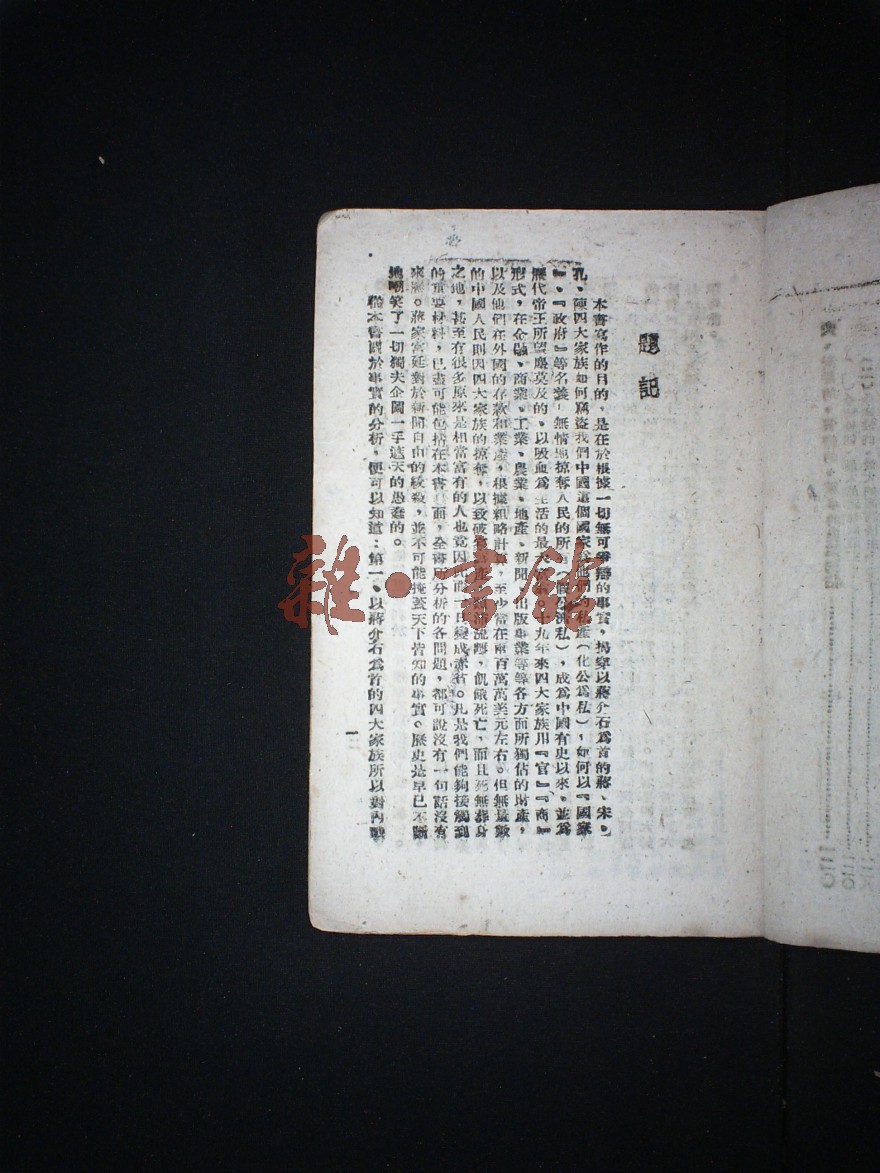 題記
本書寫作的目的,是在於根據一切無可爭辯的事實,揭穿以蔣介石爲首的蔣、宋、
孔、陳四大家族如何竊盜我們中國這個國家爲他們的私產(化公爲私),如何以『國家
』、『政府』等名義無情地掠奪人民的所有(假公濟私),成爲中國有史以來,並爲
歷代帝王所望塵莫及的,以吸血爲生活的最大 十九年來四大家族用『官』『商』
形式,在金融、商業、工業、農業、地產、新聞、出版事業等等各方面所獨佔的財產,
以及他們在外國的存款和業產,根據粗略計算,至少當在兩百萬萬美元左右。但無量數
的中國人民則因四大家族的掠奪,以致破 產 流 ,飢餓死亡,而且死無葬身
之地,甚至有很多原來是相當富有的人也竟因此而一日變成赤貧。凡是我們能夠接觸到
的重要材料,已盡可能包括在本書 面,全書所分析的各問題,都可說沒有一句話沒有
來歷。蔣家宮廷對於新聞自由的絞殺,並不可能掩蓋天下皆知的事實。歷史是早已不斷
地嘲笑了一切獨夫企圖一手遮天的愚蠢的。
從本書關於事實的分析,便可以知道:第一、以蔣介石爲首的四大家族所以對內戰
一
雜·書館